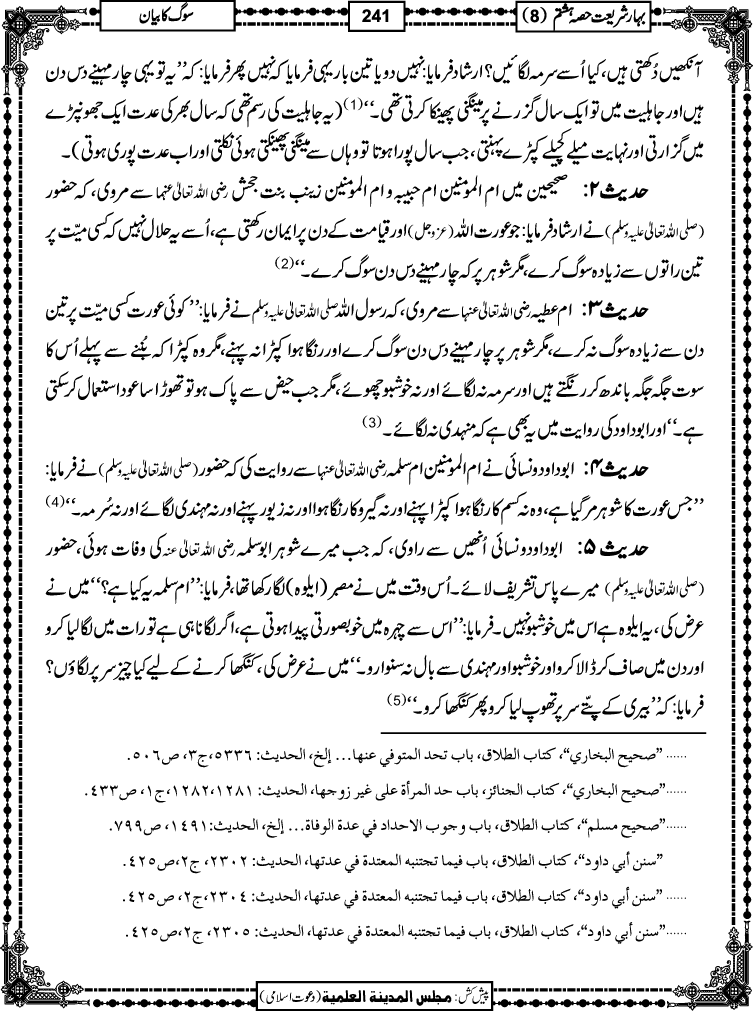 بہار شریعت حصہ ہشتم (8)
241
سوگ کا بیان
آنکھیں دُکھتی ہیں، کیا اُسے سرمہ لگائیں؟ ارشاد فرمایا: نہیں دو یا تین بار یہی فرمایا کہ نہیں پھر فرمایا: کہ ”یہ تو یہی چار مہینے دس دن
ہیں اور جاہلیت میں تو ایک سال گزرنے پر مینگنی پھینکا کرتی تھی۔“(1) (یہ جاہلیت کی رسم تھی کہ سال بھر کی عدت ایک جھونپڑے
میں گزارتی اور نہایت میلے کچیلے کپڑے پہنتی، جب سال پورا ہوتا تو وہاں سے مینگنی پھینکتی ہوئی نکلتی اور اب عدت پوری ہوتی)۔
حدیث ۲: صحیحین میں ام المومنین ام حبیبہ و ام المومنین زینب بنت جحش رضی اللہ تعالیٰ عنہما سے مروی، کہ حضور
(صلی اللہ تعالیٰ علیہ وسلم) نے ارشاد فرمایا: جو عورت اللہ (عزوجل) اور قیامت کے دن پر ایمان رکھتی ہے، اُسے یہ حلال نہیں کہ کسی میّت پر
تین راتوں سے زیادہ سوگ کرے، مگر شوہر پر کہ چار مہینے دس دن سوگ کرے۔“(2)
حدیث ۳: ام عطیہ رضی اللہ تعالیٰ عنہا سے مروی، کہ رسول اللہ صلی اللہ تعالیٰ علیہ وسلم نے فرمایا: ”کوئی عورت کسی میّت پر تین
دن سے زیادہ سوگ نہ کرے، مگر شوہر پر چار مہینے دس دن سوگ کرے اور رنگا ہوا کپڑا نہ پہنے، مگر وہ کپڑا کہ بُننے سے پہلے اُس کا
سوت جگہ جگہ باندھ کر رنگتے ہیں اور سرمہ نہ لگائے اور نہ خوشبو چھوئے، مگر جب حیض سے پاک ہو تو تھوڑا سا عود استعمال کر سکتی
ہے۔“ اور ابو داود کی روایت میں یہ بھی ہے کہ منہدی نہ لگائے۔(3)
حدیث ۴: ابو داود و نسائی نے ام المومنین ام سلمہ رضی اللہ تعالیٰ عنہا سے روایت کی کہ حضور (صلی اللہ تعالیٰ علیہ وسلم) نے فرمایا:
”جس عورت کا شوہر مر گیا ہے، وہ نہ کسم کا رنگا ہوا کپڑا پہنے اور نہ گیرو کا رنگا ہوا اور نہ زیور پہنے اور نہ مہندی لگائے اور نہ سُرمہ۔“(4)
حدیث ۵: ابو داود و نسائی اُنھیں سے راوی، کہ جب میرے شوہر ابو سلمہ رضی اللہ تعالیٰ عنہ کی وفات ہوئی، حضور
(صلی اللہ تعالیٰ علیہ وسلم) میرے پاس تشریف لائے۔ اُس وقت میں نے مصبر (ایلوہ) لگا رکھا تھا، فرمایا: ”ام سلمہ یہ کیا ہے؟“ میں نے
عرض کی، یہ ایلوہ ہے اس میں خوشبو نہیں۔ فرمایا: ”اس سے چہرہ میں خوبصورتی پیدا ہوتی ہے، اگر لگانا ہی ہے تو رات میں لگا لیا کرو
اور دن میں صاف کر ڈالا کرو اور خوشبو اور مہندی سے بال نہ سنوارو۔“ میں نے عرض کی، کنگھا کرنے کے لیے کیا چیز سر پر لگاؤں؟
فرمایا: کہ ”بیری کے پتّے سر پر تھوپ لیا کرو پھر کنگھا کرو۔“(5)
...... ”صحيح البخاري“، كتاب الطلاق، باب تحد المتوفي عنها... إلخ، الحديث: ٥٣٣٦، ج٣، ص٥٠٦.
......”صحيح البخاري“، كتاب الجنائز، باب حد المرأة على غير زوجها، الحديث: ١٢٨١، ١٢٨٢، ج١، ص٤٣٣.
......”صحيح مسلم“، كتاب الطلاق، باب وجوب الاحداد في عدة الوفاة... إلخ، الحديث: ١٤٩١، ص٧٩٩.
”سنن أبي داود“، كتاب الطلاق، باب فيما تجتنبه المعتدة في عدتها، الحديث: ٢٣٠٢، ج٢، ص٤٢٥.
...... ”سنن أبي داود“، كتاب الطلاق، باب فيما تجتنبه المعتدة في عدتها، الحديث: ٢٣٠٤، ج٢، ص٤٢٥.
......”سنن أبي داود“، كتاب الطلاق، باب فيما تجتنبه المعتدة في عدتها، الحديث: ٢٣٠٥، ج٢، ص٤٢٥.
پیش کش: مجلس المدينة العلمية (دعوت اسلامی)